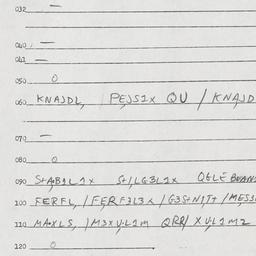 032 —
040 —
041 —
050 0
060 KNAJDL, PEJS1X QU / KNAJD
070 —
080 0
090 S+AB1L1X S+/LG3L1X
100 FERFL, /FERF3L3X / G3S+N1T+ /MES3
110 MAXLS, /M3XU-L1M QRR/ XU-L1M2
120 0